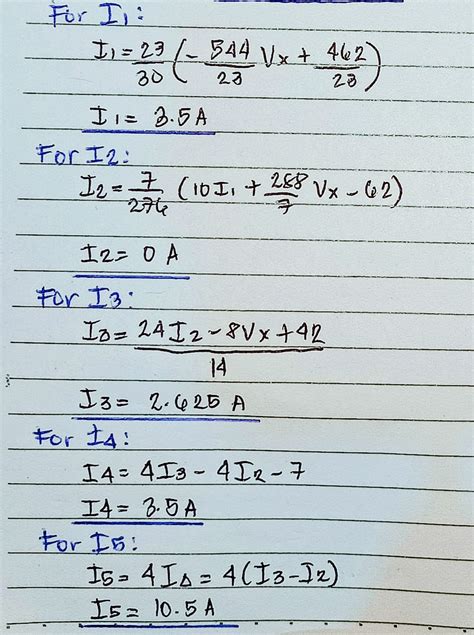 For I1:
I1 = 23/30 (- 544/23 Vx + 462/23)
I1 = 3.5 A
For I2:
I2 = 7/276 (10I1 + 288/7 Vx - 62)
I2 = 0 A
For I3:
I3 = 24I2 - 8Vx + 42 / 14
I3 = 2.625 A
For I4:
I4 = 4I3 - 4I2 - 7
I4 = 3.5 A
For I5:
I5 = 4IΔ = 4(I3 - I2)
I5 = 10.5 A